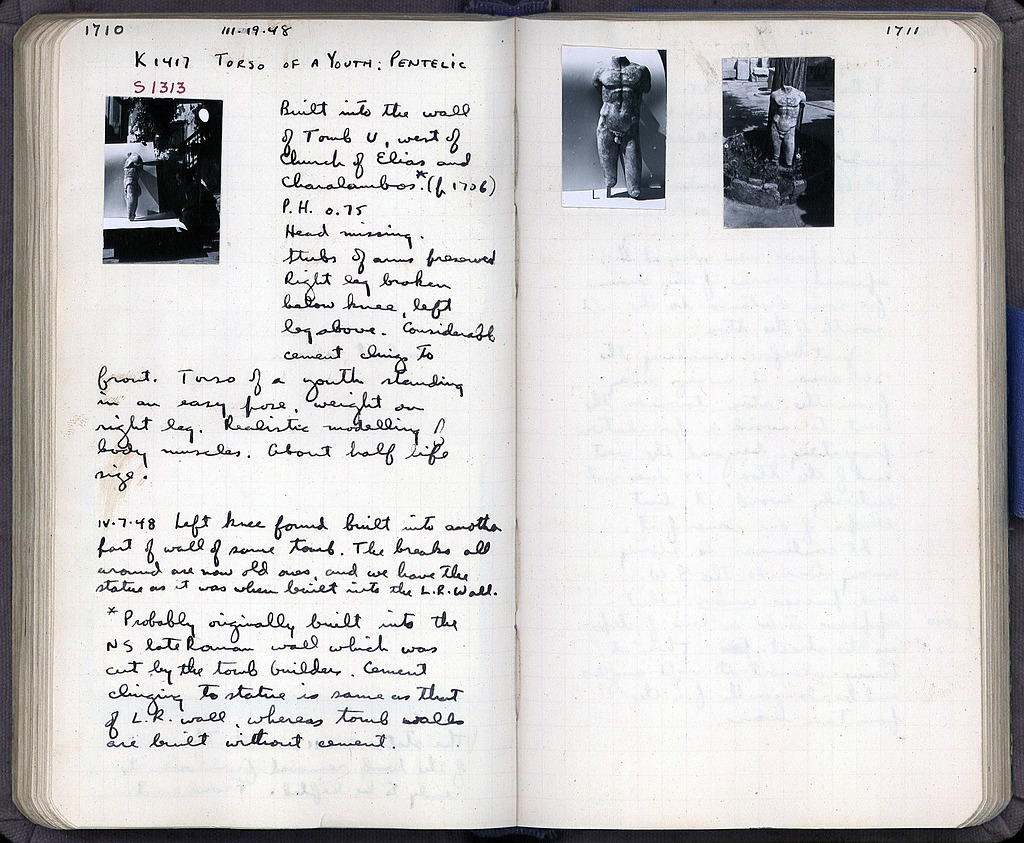 1710
III-19-48
K 1417 TORSO OF A YOUTH: PENTELIC
S 1313
Built into the wall
of Tomb U, west of
Church of Elias and
Charalambos.* (p. 1706)
P.H. 0.75
Head missing.
Stubs of arms preserved
Right leg broken
below knee, left
leg above. Considerable
cement clings to
front. Torso of a youth standing
in an easy pose, weight on
right leg. Realistic modelling of
body muscles. About half life
size.
IV-7-48 Left knee found built into another
part of wall of same tomb. The breaks all
around are now old ones, and we have the
statue as it was when built into the L.R. Wall.
* Probably originally built into the
NS late Roman wall which was
cut by the tomb builders. Cement
clinging to statue is same as that
of L.R. wall, whereas tomb walls
are built without cement.
1711